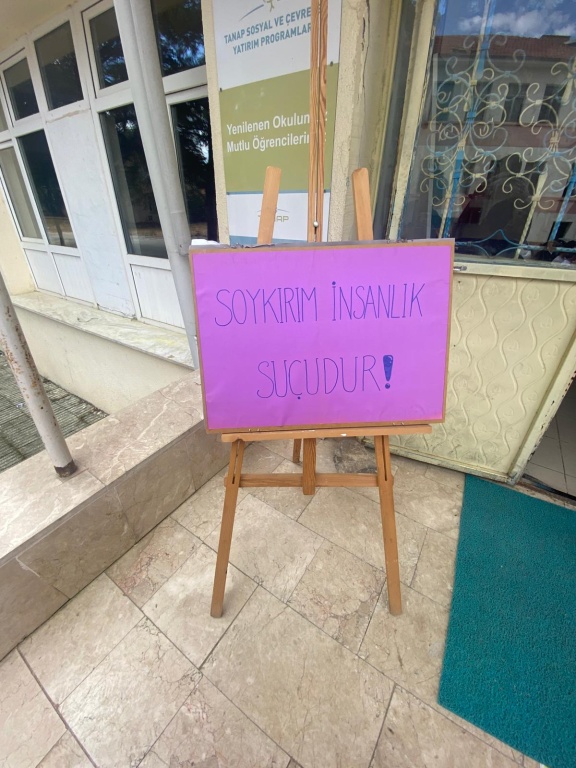 TANAP SOSYAL VE ÇEVRE
YATIRIM PROGRAMLAR
Yenilenen Okulun
Mutlu Öğrencilerin
SOYKIRIM İNSANLIK
SUÇUDUR!